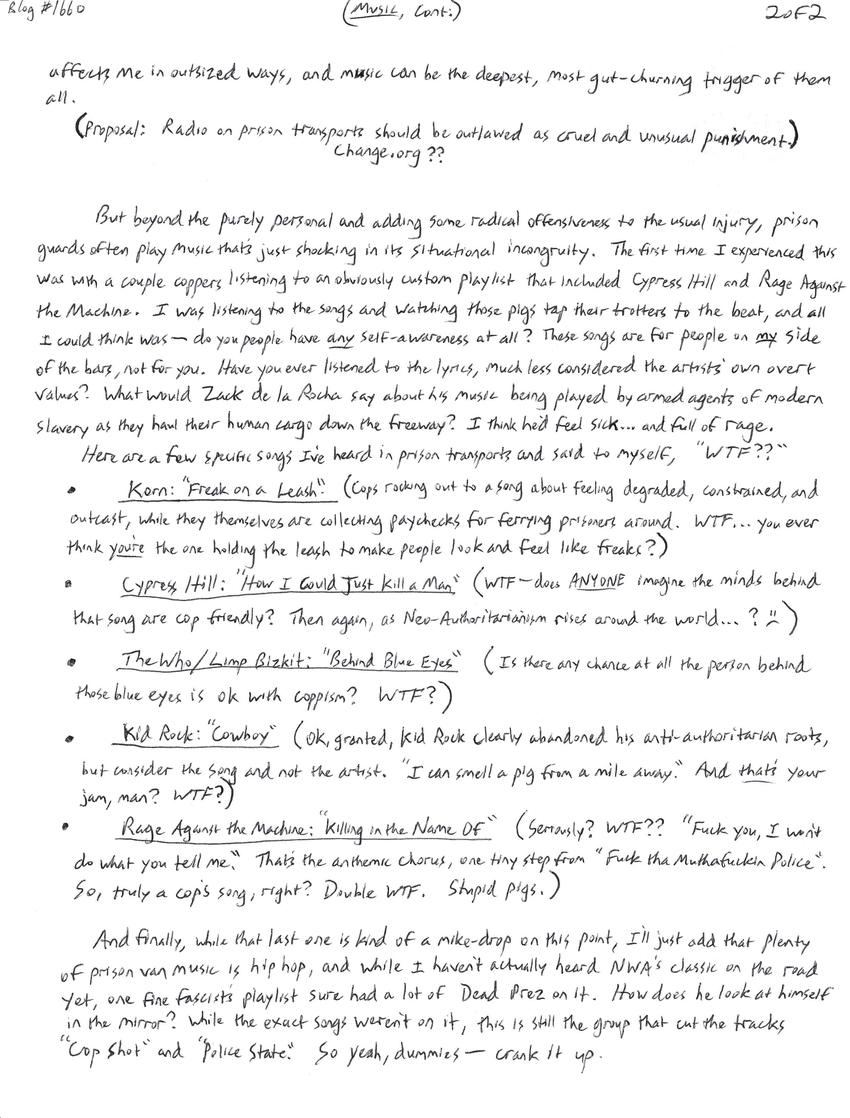 Blog #1660 (Music, Cont.) 2 of 2
affects me in outsized ways, and music can be the deepest, most gut-churning trigger of them
all.
(Proposal: Radio on prison transports should be outlawed as cruel and unusual punishment.)
Change.org ??
But beyond the purely personal and adding some radical offensiveness to the usual injury, prison
guards often play music that's just shocking in its situational incongruity. The first time I experienced this
was with a couple coppers listening to an obviously custom playlist that included Cypress Hill and Rage Against
the Machine. I was listening to the songs and watching those pigs tap their trotters to the beat, and all
I could think was — do you people have any self-awareness at all? These songs are for people on my side
of the bars, not for you. Have you ever listened to the lyrics, much less considered the artists' own overt
values? What would Zack de la Rocha say about his music being played by armed agents of modern
slavery as they haul their human cargo down the freeway? I think he'd feel sick... and full of rage.
Here are a few specific songs I've heard in prison transports and said to myself, "WTF??"
• Korn: "Freak on a Leash" (Cops rocking out to a song about feeling degraded, constrained, and
outcast, while they themselves are collecting paychecks for ferrying prisoners around. WTF... you ever
think you're the one holding the leash to make people look and feel like freaks?)
• Cypress Hill: "How I Could Just Kill a Man" (WTF — does ANYONE imagine the minds behind
that song are cop friendly? Then again, as Neo-Authoritarianism rises around the world... ? :( )
• The Who/Limp Bizkit: "Behind Blue Eyes" (Is there any chance at all the person behind
those blue eyes is ok with coppism? WTF?)
• Kid Rock: "Cowboy" (Ok, granted, Kid Rock clearly abandoned his anti-authoritarian roots,
but consider the song and not the artist. "I can smell a pig from a mile away." And that's your
jam, man? WTF?)
• Rage Against the Machine: "Killing in the Name Of" (Seriously? WTF?? "Fuck you, I won't
do what you tell me." That's the anthemic chorus, one tiny step from "Fuck tha Muthafuckin Police".
So, truly a cop's song, right? Double WTF. Stupid pigs.)
And finally, while that last one is kind of a mike-drop on this point, I'll just add that plenty
of prison van music is hip hop, and while I haven't actually heard NWA's classic on the road
yet, one fine fascist's playlist sure had a lot of Dead Prez on it. How does he look at himself
in the mirror? While the exact songs weren't on it, this is still the group that cut the tracks
"Cop Shot" and "Police State." So yeah, dummies — crank it up.